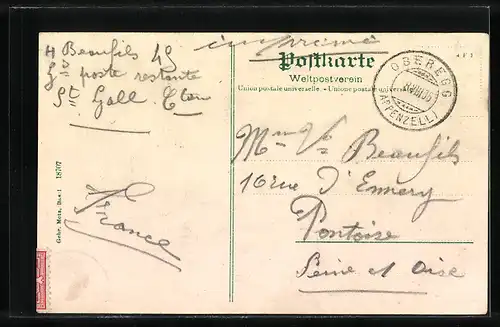 H Beaufils 49
Gd poste restante
St Gall Cton
France
imprimé
Postkarte
Weltpostverein
Union postale universelle. - Unione postale universale
OBEREGG
(APPENZELL)
Mme Vve Beaufils
16 rue d'Ennery
Pontoise
Seine et Oise
Gebr. Metz, Basel 18707